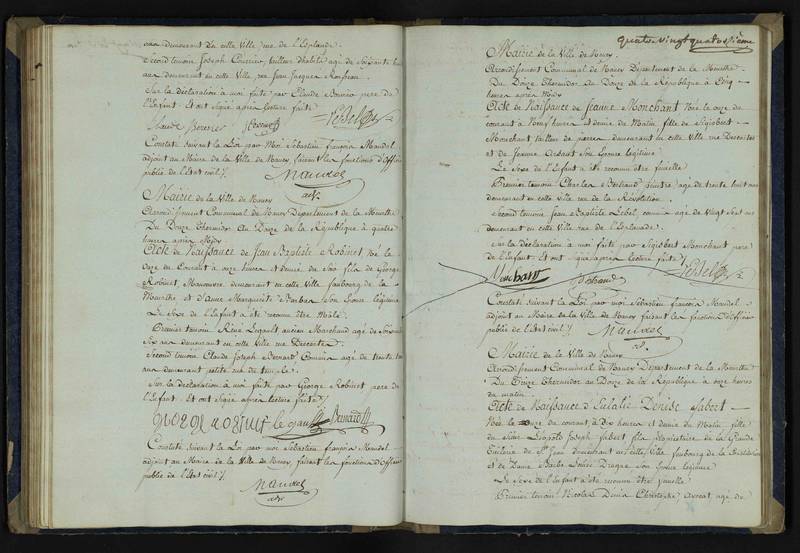 ans demeurant en cette Ville rue de l'Esplanade.
Second temoin Joseph Courrier, tailleur d'habits agé de Soixante
ans demeurant en cette Ville rue Jean Jacques Rousseau.
Sur la déclaration à moi faite par Claude père de
l'Enfant. Et ont Signé après lecture faite
Claude Lebel
Constaté Suivant la Loi par Moi Sébastien françois Mandel
adjoint au Maire de la Ville de Nancy faisant les fonctions d'Officier
public de l'état civil./.
Mandel
adj.
Mairie de la Ville de Nancy
Arrondissement Communal de Nancy Département de la Meurthe.
Du Douze Thermidor an Douze de la République à quatre
heures après Midy
Acte de Naissance de Jean Baptiste Robinet Né le
onze du Courant à onze heures et demie du Soir fils de George
Robinet, Manoeuvre demeurant en cette Ville faubourg de la
Meurthe et d'anne Marguerite Barbier Son Epouse légitime
Le Sexe de l'Enfant a été reconnu être Mâle.
Premier temoin René Legault ancien Marchand agé de Soixante
Six ans demeurant en cette Ville rue Descartes.
Second temoin Claude Joseph Bernard Commis agé de trente
ans demeurant petite rue du temple.
Sur la déclaration à moi faite par George Robinet pere de
l'Enfant. Et ont Signé après lecture faite./.
Bernard
Constaté Suivant la Loi par moi Sébastien françois Mandel
adjoint au Maire de la Ville de Nancy, faisant les fonctions d'Officier
public de l'état civil./.
Mandel
adj.
quatre vingt quatorzième
Mairie de la Ville de Nancy.
Arrondissement Communal de Nancy Département de la Meurthe.
Du Douze Thermidor an Douze de la République à Cinq
heures après Midy
Acte de Naissance de Jeanne Monchant Née le onze du
courant à Neuf heures et demie du Matin fille de Sigisbert
Monchant tailleur de pierres demeurant en cette Ville rue Descartes
et de Jeanne Son Epouse légitime
Le Sexe de l'Enfant a été reconnu être femelle
Premier temoin Charles Bertrand peintre agé de trente huit ans
demeurant en cette Ville rue de la Révolution.
Second temoin Jean Baptiste Lebel, commis agé de Vingt Sept ans
demeurant en cette Ville rue de l'Esplanade.
Sur la déclaration à moi faite par Sigisbert Monchant pere
de l'Enfant. et ont Signé après lecture faite./.
Monchant Bertrand Lebel
Constaté Suivant la Loi par moi Sébastien françois Mandel
adjoint au Maire de la Ville de Nancy faisant les fonctions d'Officier
public de l'état civil./.
Mandel
adj.
Mairie de la Ville de Nancy
Arrondissement Communal de Nancy Département de la Meurthe
Du Treize Thermidor an Douze de la République à onze heures
du matin
Acte de Naissance d'Eulalie Denise Jabert
Née le Douze du courant à Dix heures et demie du Matin fille
du Sieur Léopold Joseph Jabert propriétaire de la Grande
Tuilerie de St Jean demeurant en cette Ville faubourg de la
et de Dame Barbe Louise Son Epouse légitime
Le Sexe de l'Enfant a été reconnu être femelle
Premier temoin Nicolas Denis Christophe avocat agé de